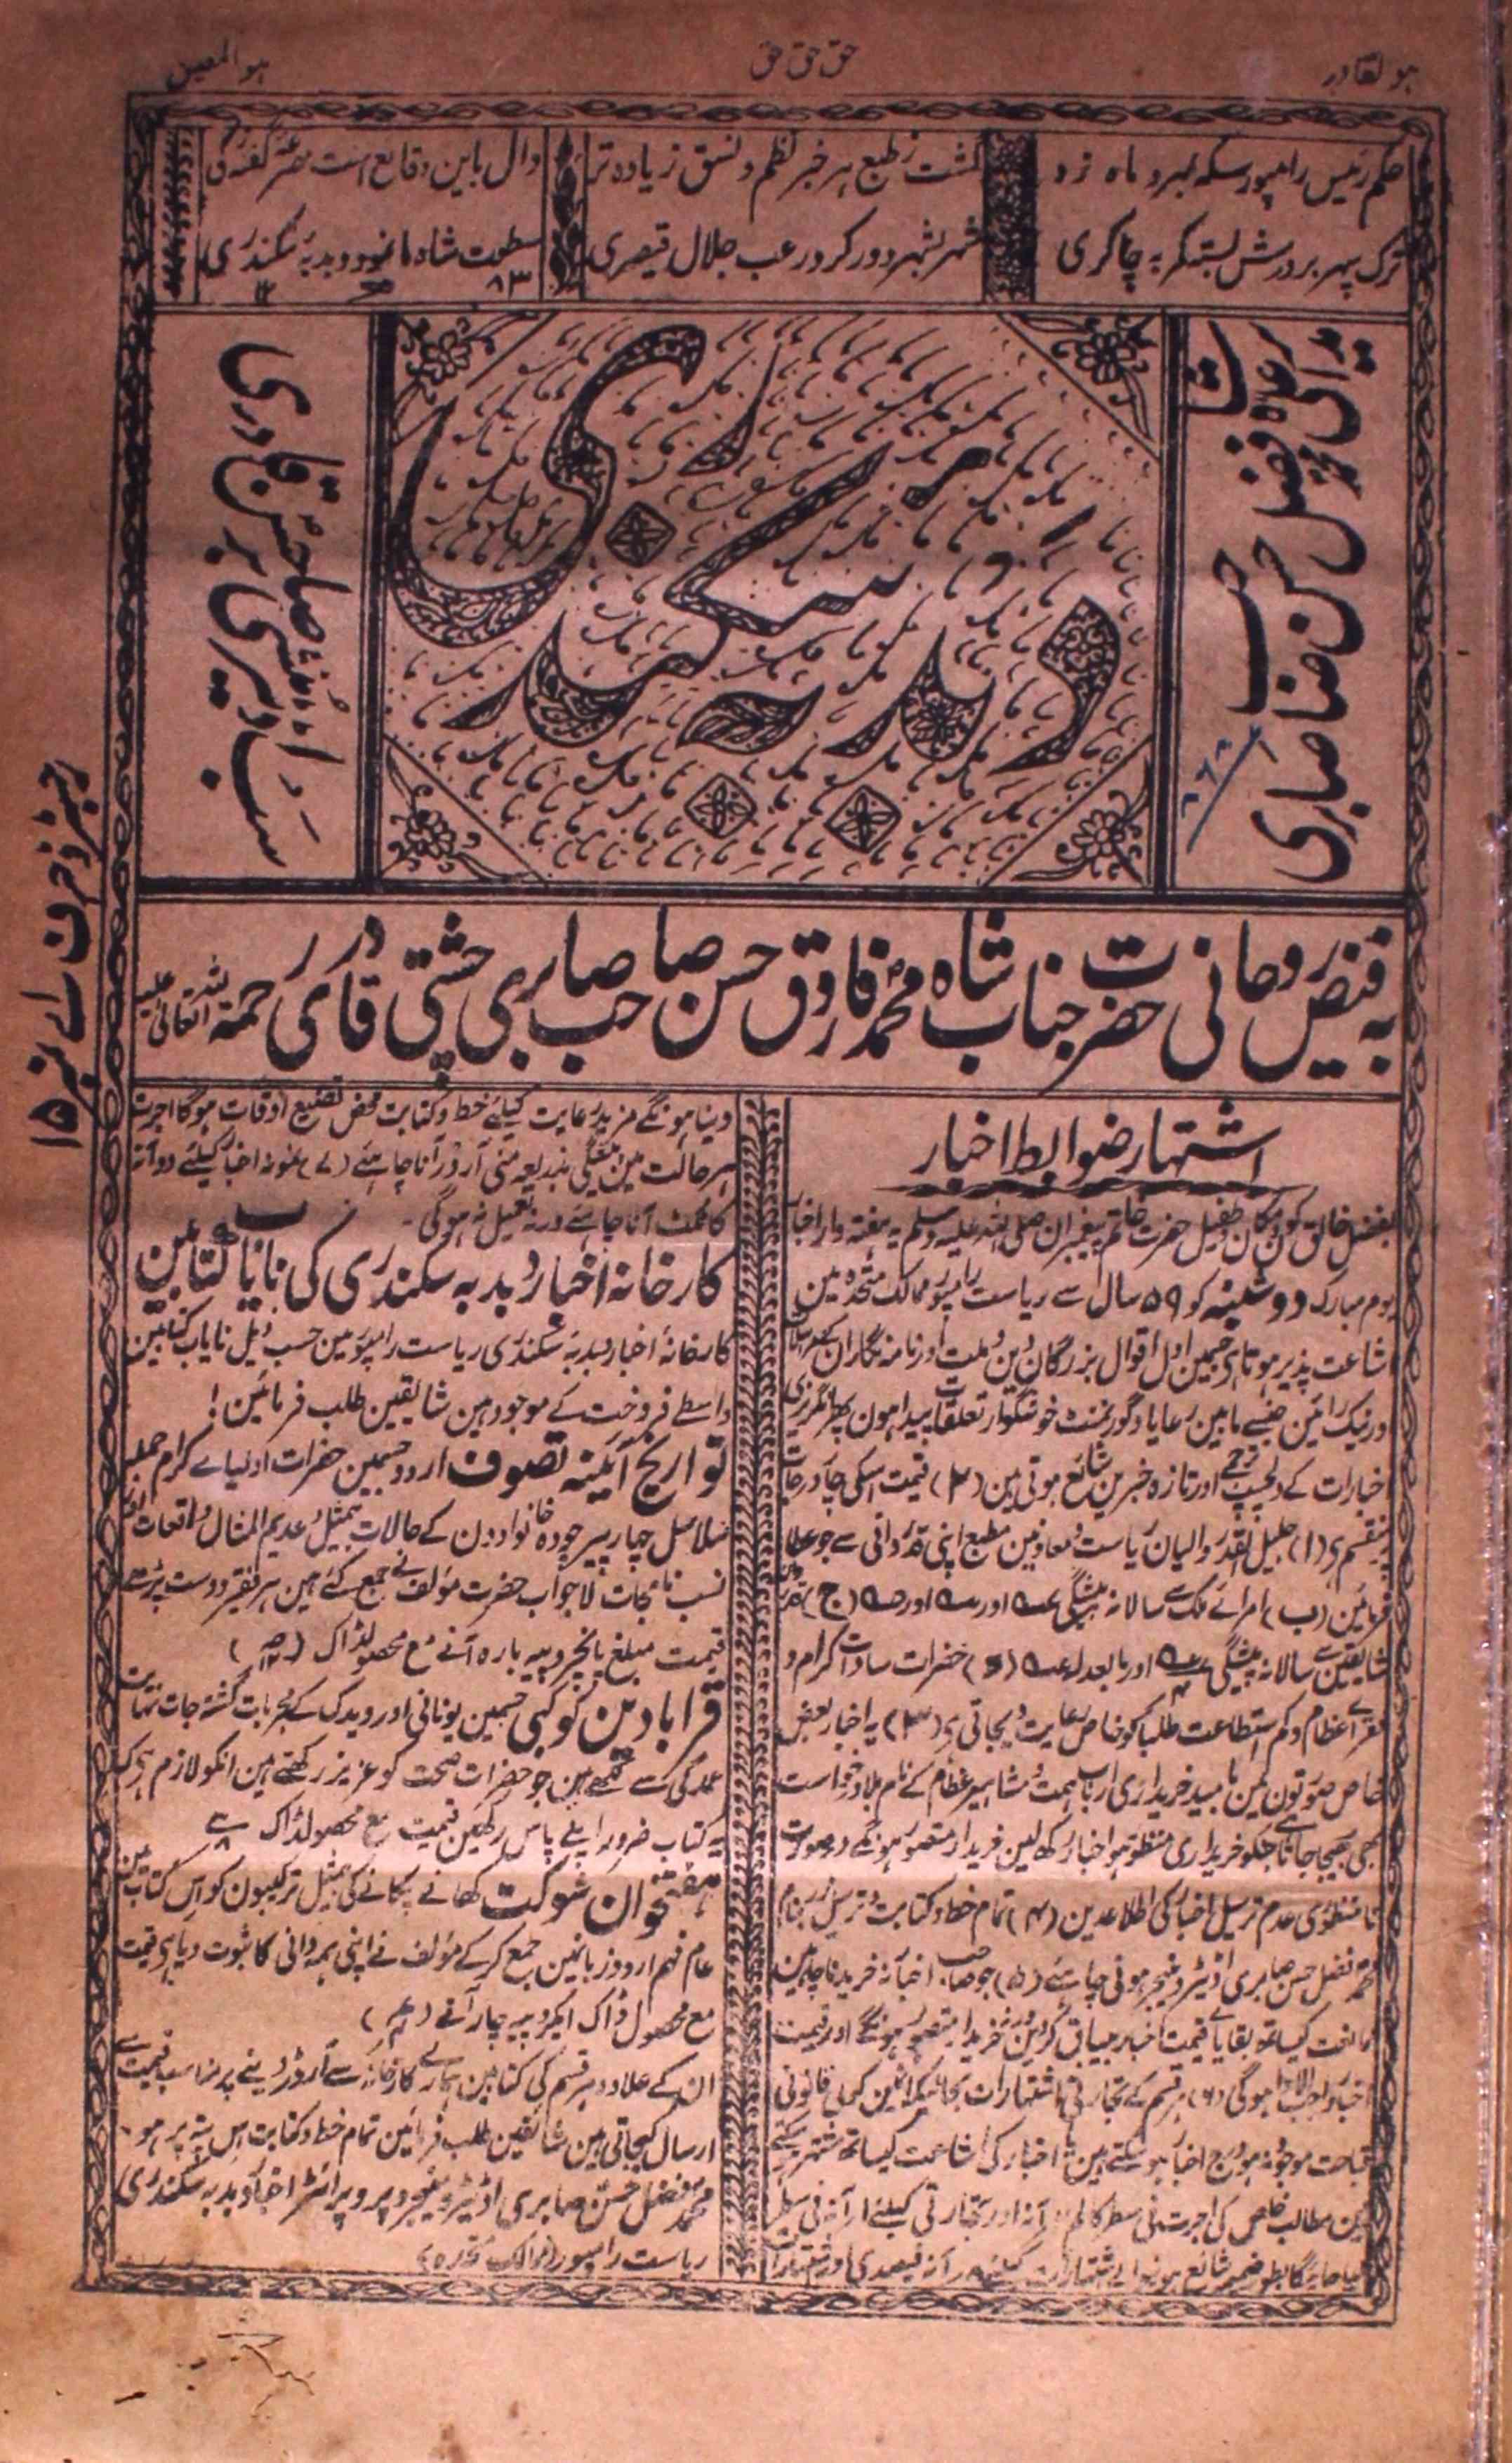 ہو القادر
حق حق حق
ہو المعین
حکم رئیس رامپور سکہ بمہر و ماہ زد
گشت ز طبع ہر خبر نظم و نسق زیادہ تر
دال باین وقایع است مصرعہ
ترک سپہر بر درش بستہ کمر بہ چاکری
شہر بشہر دور کرد رعب جلال قیصری
سطوت شاہ مانمود دبدبہ سکندری
دبدبہ سکندری
اڈیٹر محمد فضل حسن صاحب صابری
سب اڈیٹر صاحب قادری
رجسٹرڈ حرف اے نمبر ۱۵
بہ فیض روحانی حضرت جناب شاہ محمد فاروق حسن صاحب صابری چشتی قادری رحمۃ اللہ تعالیٰ علیہ
اشتہار ضوابط اخبار
بفضل خالق کون و مکان و طفیل حضرت خاتم پیغمبران صلی اللہ علیہ وسلم یہ ہفتہ وار اخبار
یوم مبارک دوشنبہ کو ۵۹ سال سے ریاست رامپور ممالک متحدہ مین
اشاعت پذیر ہوتا ہی جسمین اول اقوال بزرگان دین و ملت اور نامہ نگاران کے
ور نیک رائین جنسے مابین رعایا و گورنمنٹ خوشگوار تعلقات پیدا ہون پھر انگریزی
اخبارات کے دلچسپ ترجمے اور تازہ خبرین شائع ہوتی ہین (۲) قیمت اسکی چار درجات
پر منقسم ہی (ا) جلیل القدر والیان ریاست و معاونین مطبع اپنی قدردانی سے جو عطا
فرمائین (ب) امرائے ملک سے سالانہ پیشگی
شایقین سے سالانہ پیشگی اور مابعد حضرات سادات کرام و
فقرائے عظام و کم استطاعت طلبا کو خاص رعایت دیجاتی ہی (۳) یہ اخبار بعض
خاص صورتون مین بامید خریداری ارباب ہمت و مشاہیر عظام کے نام بلا درخواست
بھی بھیجا جاتا ہی جنکو خریداری منظور ہو اخبار رکھ لین خریدار متصور ہونگے درصورت
نامنظوری عدم ترسیل اخبار کی اطلاعدین (۴) تمام خط و کتابت و ترسیل زر بنام
محمد فضل حسن صابری اڈیٹر و منیجر ہونی چاہئے (۵) جو صاحب اخبار نہ خریدنا چاہین
ممانعت کیساتھ بقایائے قیمت اخبار بیباق کردین ورنہ خریدار متصور ہونگے اور قیمت
اخبار واجب الادا ہوگی (۶) ہر قسم کے تجارتی اشتہارات بشرطیکہ انمین کوئی قانونی
قباحت موجود نہو درج اخبار ہو سکتے ہین اخبار کی اشاعت کیساتھ مشتہر
مطالب خاص کی اجرت فی سطر کالم آنہ اور تجارتی کیلئے ۱ر آنہ فی سطر
لیا جائیگا بطور ضمیمہ شائع ہونیوالے اشتہارات کیلئے آنہ فیصدی اور تمام اشتہارات
دینا ہونگے مزید رعایت کیلئے خط و کتابت محض تضیع اوقات ہوگا اجرت
ہر حالت مین پیشگی بذریعہ منی آرڈر آنا چاہئے (۷) نمونہ اخبار کیلئے دو آنہ
کا ٹکٹ آنا چاہئے ورنہ تعمیل نہ ہوگی۔
کارخانہ اخبار دبدبہ سکندری کی نایاب کتابین
کارخانۂ اخبار دبدبہ سکندری ریاست رامپور مین حسب ذیل نایاب کتابین
واسطے فروخت کے موجود ہین شایقین طلب فرمائین!
تواریخ آئینہ تصوف اردو جسمین حضرات اولیائے کرام جملہ
سلاسل چہار پیر چودہ خانوادون کے حالات بمثیل و عدیم المثال واقعات
نسب نامجات لاجواب حضرت مؤلف نے جمع کئے ہین ہر فقیر دوست پرست
قیمت مبلغ پانچروپیہ بارہ آنے مع محصولڈاک
قرابادین کوکبی جسمین یونانی اور ویدک کے مجربات کشتہ جات نہایت
عمدگی سے لکھے ہین جو حضرات صحت کو عزیز رکھتے ہین انکو لازم ہی کہ
یہ کتاب ضرور اپنے پاس رکھین قیمت مع محصولڈاک
ہفتخوان شوکت کھانے پکانے کی بمثیل ترکیبون کو اس کتاب مین
عام فہم اردو زبانمین جمع کرکے مؤلف نے اپنی ہمہ دانی کا ثبوت دیا ہی قیمت
مع محصول ڈاک ایکروپیہ چار آنے
ان کے علاوہ ہر قسم کی کتابین ہمارے کارخانہ سے آرڈر دینے پر مناسب قیمت سے
ارسال کیجاتی ہین شائقین طلب فرمائین تمام خط و کتابت اس پتہ پر ہو۔
محمد فضل حسن صابری اڈیٹر و منیجر و پروپرائٹر اخبار دبدبہ سکندری
ریاست رامپور (ممالک متحدہ)